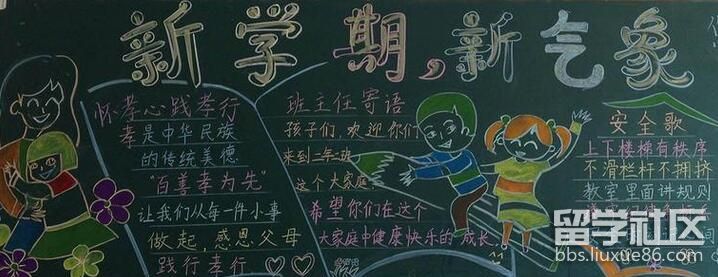 新学期,新气象
怀孝心践孝行
孝是中华民族
的传统美德
"百善孝为先"
让我们从每一件小事
做起,感恩父母
践行孝行
班主任寄语
孩子们,欢迎你们
来到二年班
这个大家庭
希望你们在这个
大家庭中健康快乐的成长
安全歌
上下楼梯有秩序
不滑栏杆不拥挤
教室里面讲规则
留学社区
bbs.liuxue86.com